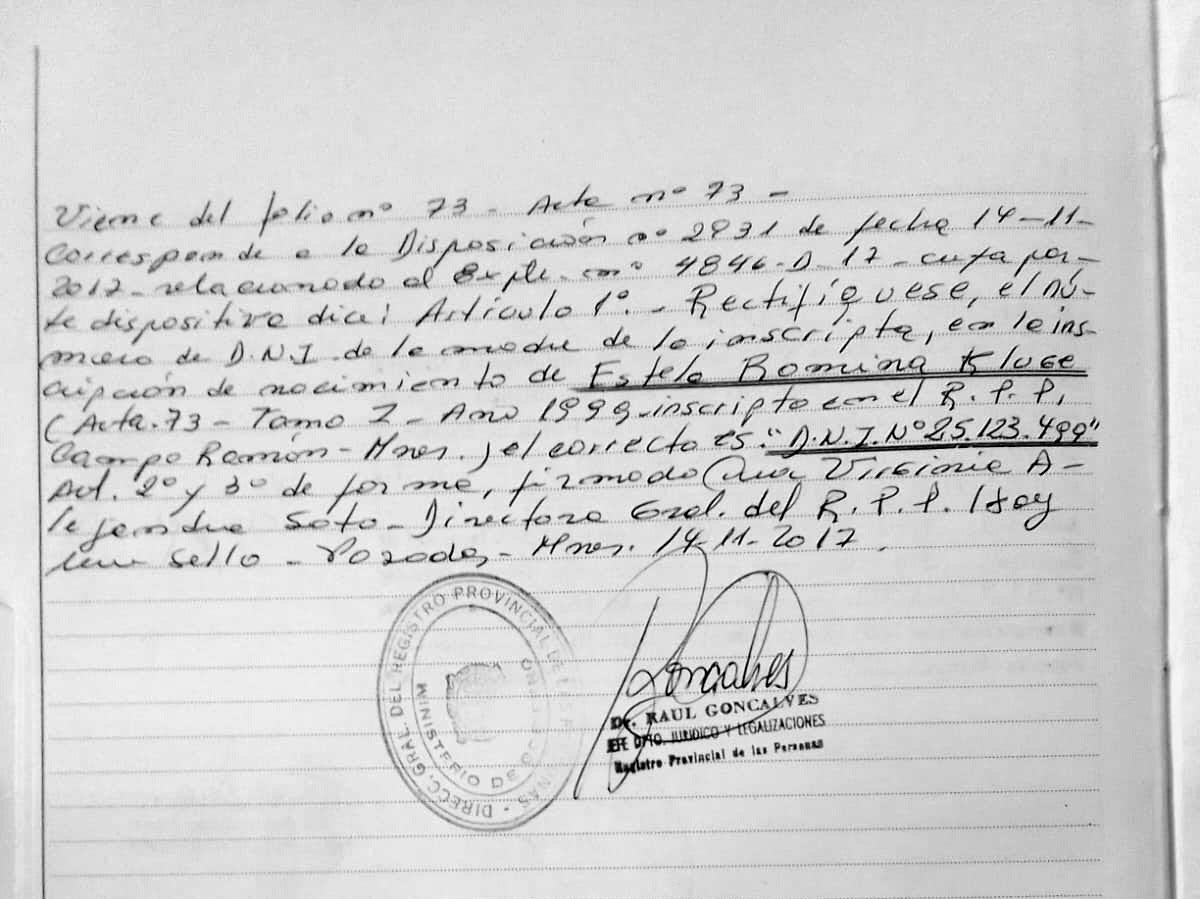 Viene del folio nº 73 - Acta nº 73 -
Corresponde a la Disposición nº 2931 de fecha 14-11-
2017 - relacionado al Expte. nº 4846-D-17 - cuya par-
te dispositiva dice: Artículo 1º. - Rectifíquese, el nú-
mero de D.N.I. de la madre de la inscripta, en la ins-
cripción de nacimiento de Estela Romina Kluge
(Acta.73 - Tomo I - Año 1999 - inscripto en el R.P.P.
Campo Ramón - Mnes.) el correcto es: "D.N.I. Nº 25.123.499"
Art. 2º y 3º de forma, firmado Ana Virginia A-
lejandra Soto - Directora Gral. del R.P.P. Hay
un sello - Posadas - Mnes. 14-11-2017.
DIRECC. GRAL. DEL REGISTRO PROVINCIAL DE LAS
MINISTERIO DE
Goncalves
Dr. RAUL GONCALVES
JEFE DPTO. JURIDICO Y LEGALIZACIONES
Registro Provincial de las Personas